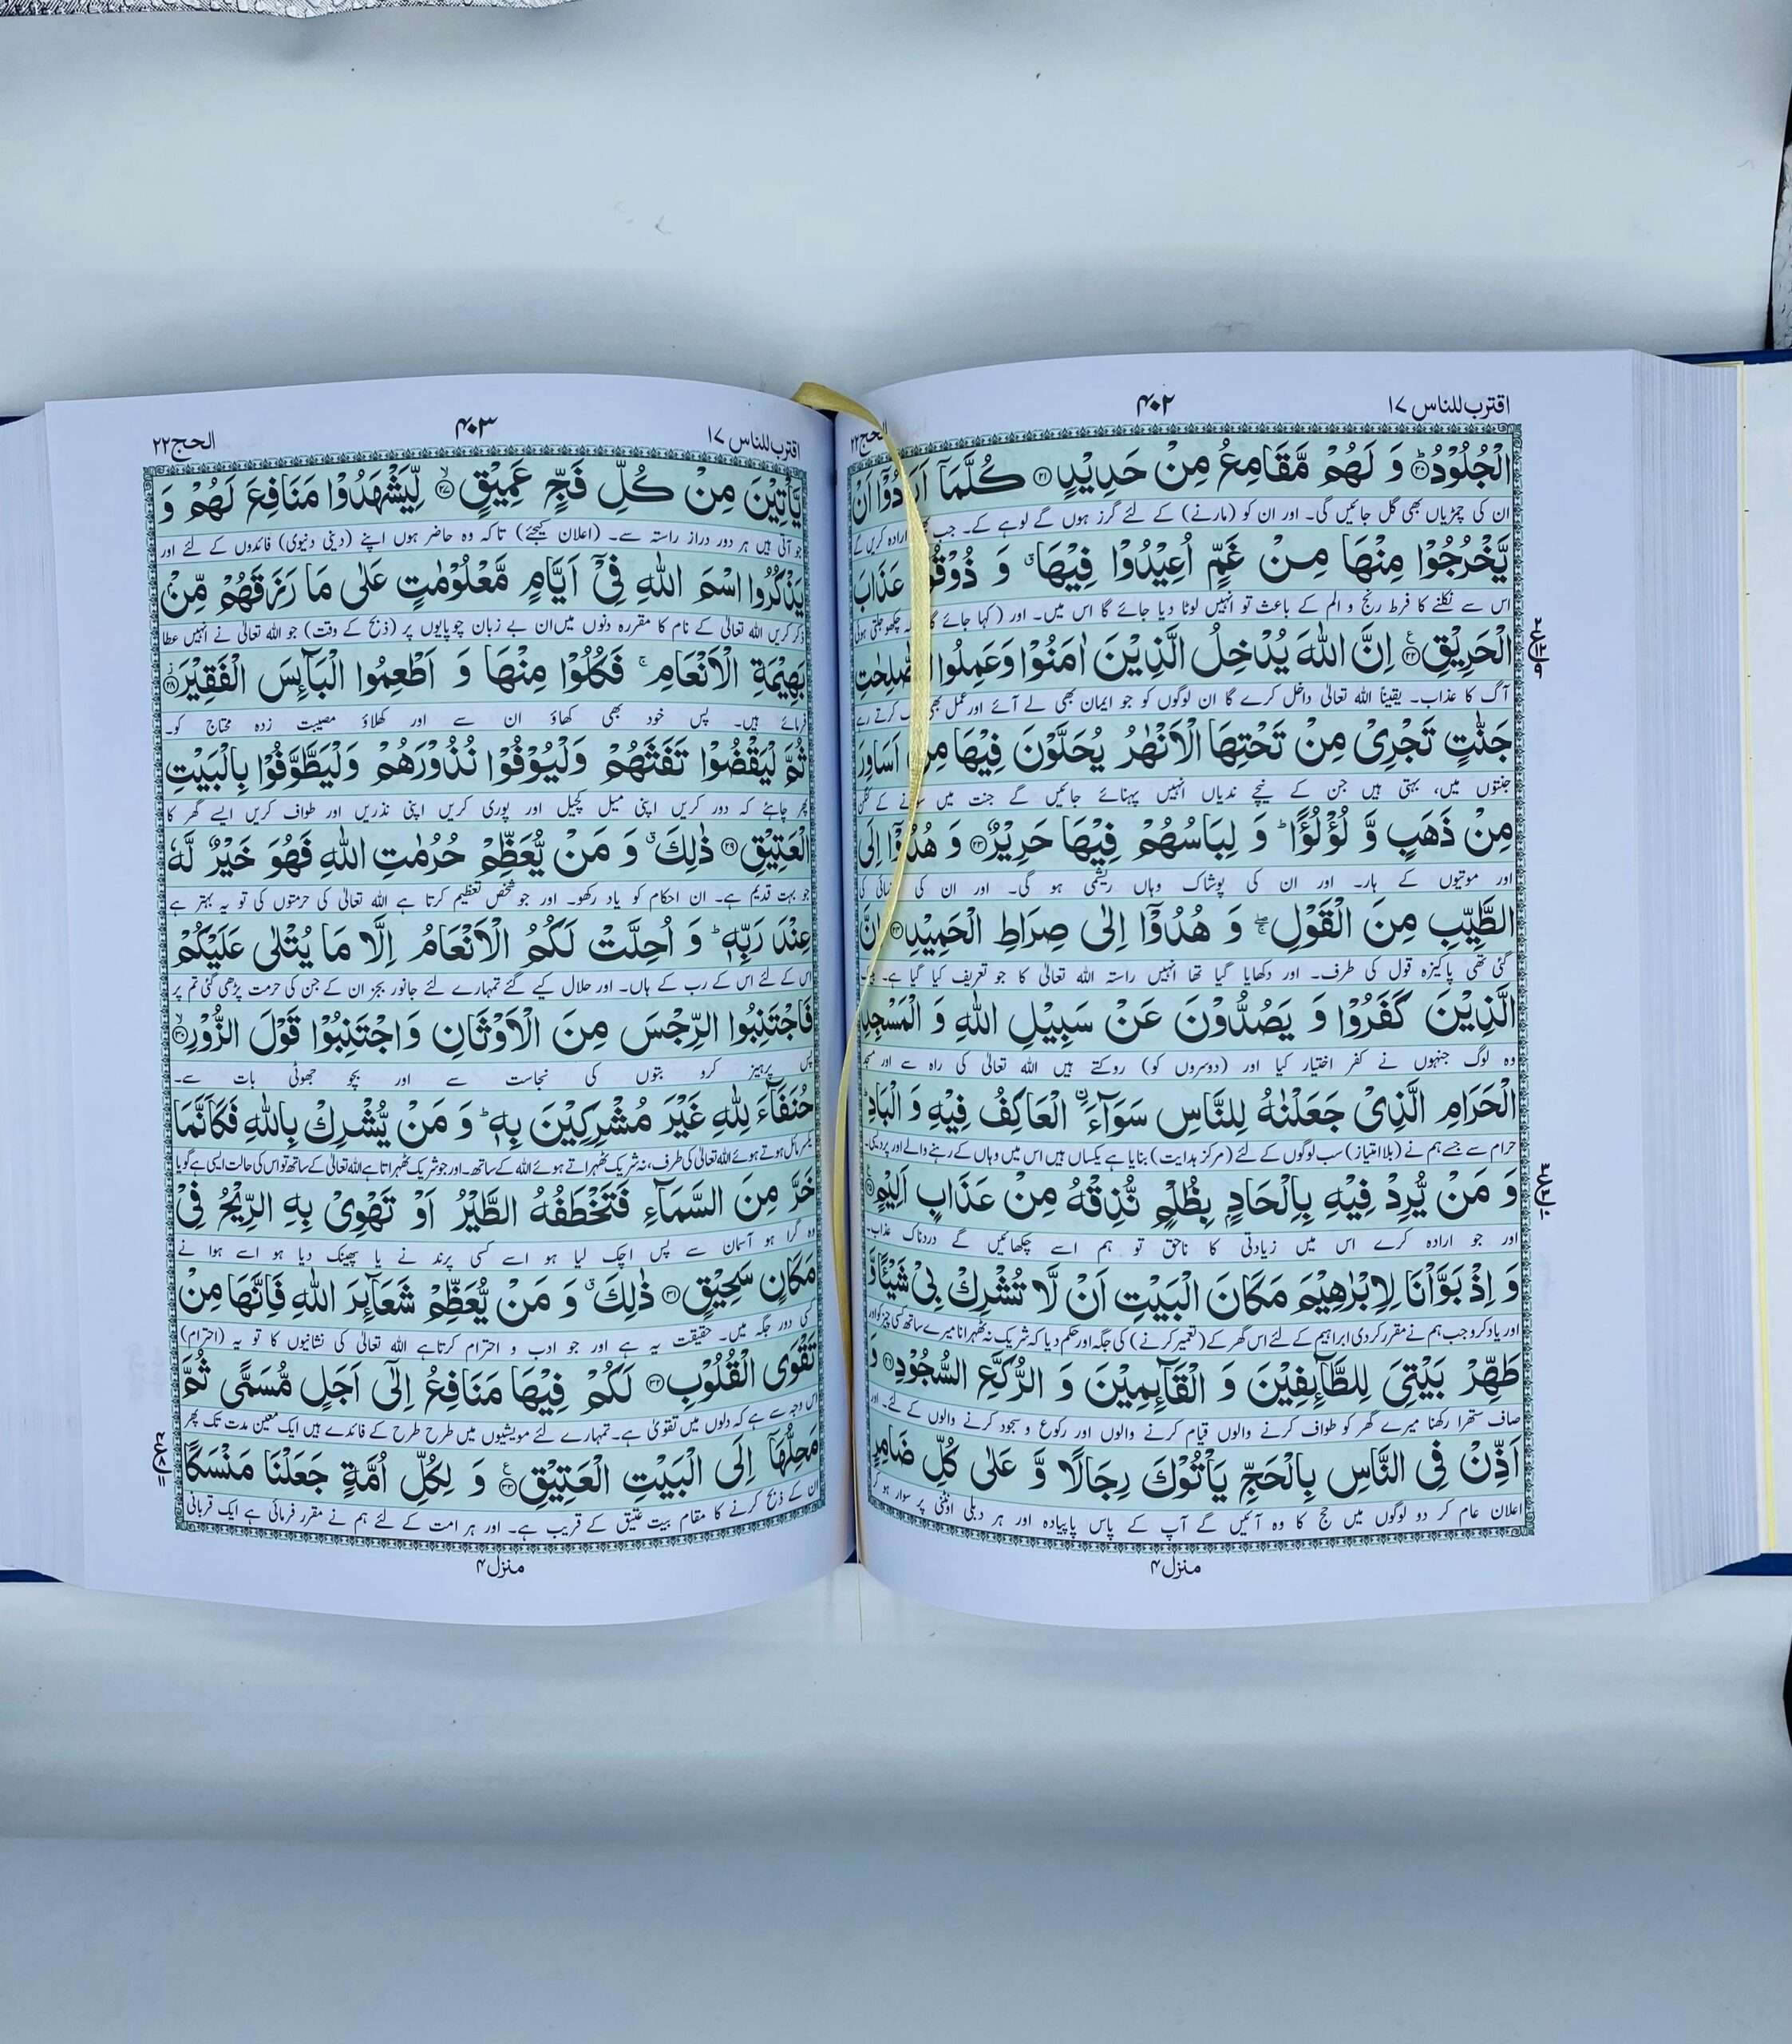 اقترب للناس ۱۷
۴۰۲
الحج ۲۲
الْجُلُوْدُ ۲۰ وَ لَهُمْ مَّقَامِعُ مِنْ حَدِيْدٍ ۲۱ كُلَّمَاۤ اَرَادُوْۤا اَنْ
ان کی چمڑیاں بھی گل جائیں گی۔ اور ان کو (مارنے) کے لئے گرز ہوں گے لوہے کے۔ جب ارادہ کریں گے
يَّخْرُجُوْا مِنْهَا مِنْ غَمٍّ اُعِيْدُوْا فِيْهَا ۗ وَ ذُوْقُوْا عَذَابَ
اس سے نکلنے کا فرط رنج و الم کے باعث تو انہیں لوٹا دیا جائے گا اس میں۔ اور (کہا جائے گا) چکھو جلتی ہوئی
الْحَرِيْقِ ۲۲ اِنَّ اللّٰهَ يُدْخِلُ الَّذِيْنَ اٰمَنُوْا وَعَمِلُوا الصّٰلِحٰتِ
آگ کا عذاب۔ یقیناً اللہ تعالیٰ داخل کرے گا ان لوگوں کو جو ایمان بھی لے آئے اور عمل بھی کرتے رہے
جَنّٰتٍ تَجْرِيْ مِنْ تَحْتِهَا الْاَنْهٰرُ يُحَلَّوْنَ فِيْهَا مِنْ اَسَاوِرَ
جنتوں میں، بہتی ہیں جن کے نیچے ندیاں انہیں پہنائے جائیں گے جنت میں سونے کے کنگن
مِنْ ذَهَبٍ وَّ لُؤْلُؤًا ؕ وَ لِبَاسُهُمْ فِيْهَا حَرِيْرٌ ۲۳ وَ هُدُوْۤا اِلَى
اور موتیوں کے ہار۔ اور ان کی پوشاک وہاں ریشمی ہو گی۔ اور ان کی راہنمائی کی
الطَّيِّبِ مِنَ الْقَوْلِ ۖۚ وَ هُدُوْۤا اِلٰى صِرَاطِ الْحَمِيْدِ ۲۴ اِنَّ
گئی تھی پاکیزہ قول کی طرف۔ اور دکھایا گیا تھا انہیں راستہ اللہ تعالیٰ کا جو تعریف کیا گیا ہے۔ بیشک
الَّذِيْنَ كَفَرُوْا وَ يَصُدُّوْنَ عَنْ سَبِيْلِ اللّٰهِ وَ الْمَسْجِدِ
وہ لوگ جنہوں نے کفر اختیار کیا اور (دوسروں کو) روکتے ہیں اللہ تعالیٰ کی راہ سے اور مسجد
الْحَرَامِ الَّذِيْ جَعَلْنٰهُ لِلنَّاسِ سَوَآءَ ۨالْعَاكِفُ فِيْهِ وَ الْبَادِ ؕ
حرام سے جسے ہم نے (بلا امتیاز) سب لوگوں کے لئے (مرکز ہدایت) بنایا ہے یکساں ہیں اس میں وہاں کے رہنے والے اور پردیسی۔
وَ مَنْ يُّرِدْ فِيْهِ بِاِلْحَادٍۭ بِظُلْمٍ نُّذِقْهُ مِنْ عَذَابٍ اَلِيْمٍ ۲۵
اور جو ارادہ کرے اس میں زیادتی کا ناحق تو ہم اسے چکھائیں گے دردناک عذاب۔
وَ اِذْ بَوَّاْنَا لِاِبْرٰهِيْمَ مَكَانَ الْبَيْتِ اَنْ لَّا تُشْرِكْ بِيْ شَيْـًٔا وَّ
اور یاد کرو جب ہم نے مقرر کردی ابراہیم کے لئے اس گھر کے (تعمیر کرنے) کی جگہ اور حکم دیا کہ شریک نہ ٹھہرانا میرے ساتھ کسی چیز کو اور
طَهِّرْ بَيْتِيَ لِلطَّآئِفِيْنَ وَ الْقَآئِمِيْنَ وَ الرُّكَّعِ السُّجُوْدِ ۲۶ وَ
صاف ستھرا رکھنا میرے گھر کو طواف کرنے والوں قیام کرنے والوں اور رکوع و سجود کرنے والوں کے لئے۔ اور
اَذِّنْ فِي النَّاسِ بِالْحَجِّ يَاْتُوْكَ رِجَالًا وَّ عَلٰى كُلِّ ضَامِرٍ
اعلان عام کر دو لوگوں میں حج کا وہ آئیں گے آپ کے پاس پاپیادہ اور ہر دبلی اونٹنی پر سوار ہو کر
منزل ۴
اقترب للناس ۱۷
۴۰۳
الحج ۲۲
يَّاْتِيْنَ مِنْ كُلِّ فَجٍّ عَمِيْقٍ ۲۷ لِّيَشْهَدُوْا مَنَافِعَ لَهُمْ وَ
جو آتی ہیں ہر دور دراز راستہ سے۔ (اعلان کیجئے) تاکہ وہ حاضر ہوں اپنے (دینی دنیوی) فائدوں کے لئے اور
يَذْكُرُوا اسْمَ اللّٰهِ فِيْۤ اَيَّامٍ مَّعْلُوْمٰتٍ عَلٰى مَا رَزَقَهُمْ مِّنْۢ
ذکر کریں اللہ تعالیٰ کے نام کا مقررہ دنوں میں ان بے زبان چوپایوں پر (ذبح کے وقت) جو اللہ تعالیٰ نے انہیں عطا
بَهِيْمَةِ الْاَنْعَامِ ۚ فَكُلُوْا مِنْهَا وَ اَطْعِمُوا الْبَآئِسَ الْفَقِيْرَ ۲۸
فرمائے ہیں۔ پس خود بھی کھاؤ ان سے اور کھلاؤ مصیبت زدہ محتاج کو۔
ثُمَّ لْيَقْضُوْا تَفَثَهُمْ وَلْيُوْفُوْا نُذُوْرَهُمْ وَلْيَطَّوَّفُوْا بِالْبَيْتِ
پھر چاہئے کہ دور کریں اپنی میل کچیل اور پوری کریں اپنی نذریں اور طواف کریں ایسے گھر کا
الْعَتِيْقِ ۲۹ ذٰلِكَ ۗ وَ مَنْ يُّعَظِّمْ حُرُمٰتِ اللّٰهِ فَهُوَ خَيْرٌ لَّهٗ
جو بہت قدیم ہے۔ ان احکام کو یاد رکھو۔ اور جو شخص تعظیم کرتا ہے اللہ تعالیٰ کی حرمتوں کی تو یہ بہتر ہے
عِنْدَ رَبِّهٖ ؕ وَ اُحِلَّتْ لَكُمُ الْاَنْعَامُ اِلَّا مَا يُتْلٰى عَلَيْكُمْ
اس کے لئے اس کے رب کے ہاں۔ اور حلال کیے گئے تمہارے لئے جانور بجز ان کے جن کی حرمت پڑھی گئی تم پر
فَاجْتَنِبُوا الرِّجْسَ مِنَ الْاَوْثَانِ وَاجْتَنِبُوْا قَوْلَ الزُّوْرِ ۳۰
پس پرہیز کرو بتوں کی نجاست سے اور بچو جھوٹی بات سے۔
حُنَفَآءَ لِلّٰهِ غَيْرَ مُشْرِكِيْنَ بِهٖ ؕ وَ مَنْ يُّشْرِكْ بِاللّٰهِ فَكَاَنَّمَا
یکسر مائل ہوتے ہوئے اللہ تعالیٰ کی طرف، نہ شریک ٹھہراتے ہوئے اللہ کے ساتھ۔ اور جو شریک ٹھہراتا ہے اللہ تعالیٰ کے ساتھ تو اس کی حالت ایسی ہے گویا
خَرَّ مِنَ السَّمَآءِ فَتَخْطَفُهُ الطَّيْرُ اَوْ تَهْوِيْ بِهِ الرِّيْحُ فِيْ
وہ گرا ہو آسمان سے پس اچک لیا ہو اسے کسی پرند نے یا پھینک دیا ہو اسے ہوا نے
مَكَانٍ سَحِيْقٍ ۳۱ ذٰلِكَ ۗ وَ مَنْ يُّعَظِّمْ شَعَآئِرَ اللّٰهِ فَاِنَّهَا مِنْ
کسی دور جگہ میں۔ حقیقت یہ ہے اور جو ادب و احترام کرتا ہے اللہ تعالیٰ کی نشانیوں کا تو یہ (احترام)
تَقْوَى الْقُلُوْبِ ۳۲ لَكُمْ فِيْهَا مَنَافِعُ اِلٰۤى اَجَلٍ مُّسَمًّى ثُمَّ
اس وجہ سے ہے کہ دلوں میں تقویٰ ہے۔ تمہارے لئے مویشیوں میں طرح طرح کے فائدے ہیں ایک معین مدت تک پھر
مَحِلُّهَاۤ اِلَى الْبَيْتِ الْعَتِيْقِ ۳۳ وَ لِكُلِّ اُمَّةٍ جَعَلْنَا مَنْسَكًا
ان کے ذبح کرنے کا مقام بیت عتیق کے قریب ہے۔ اور ہر امت کے لئے ہم نے مقرر فرمائی ہے ایک قربانی
منزل ۴